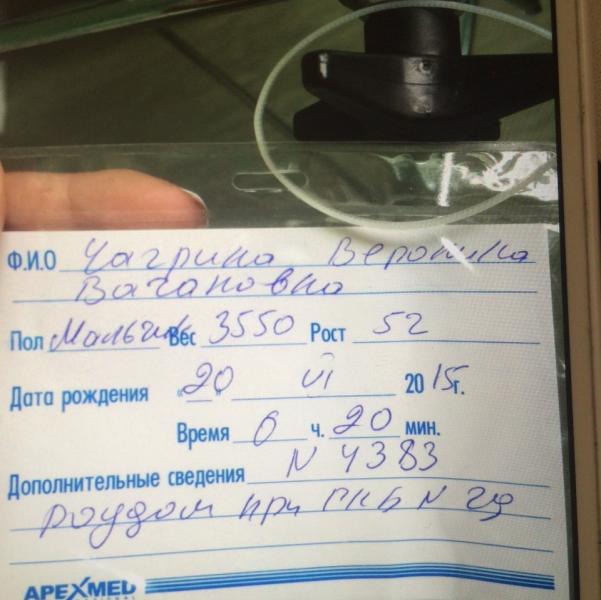 Ф.И.О Чагрина Вероника
Вагановна
Пол Мальчик Вес 3550 Рост 52
Дата рождения "20" VI 2015г.
Время 6 ч. 20 мин.
Дополнительные сведения N 4383
роддом при ГКБ N 29
APEXMED